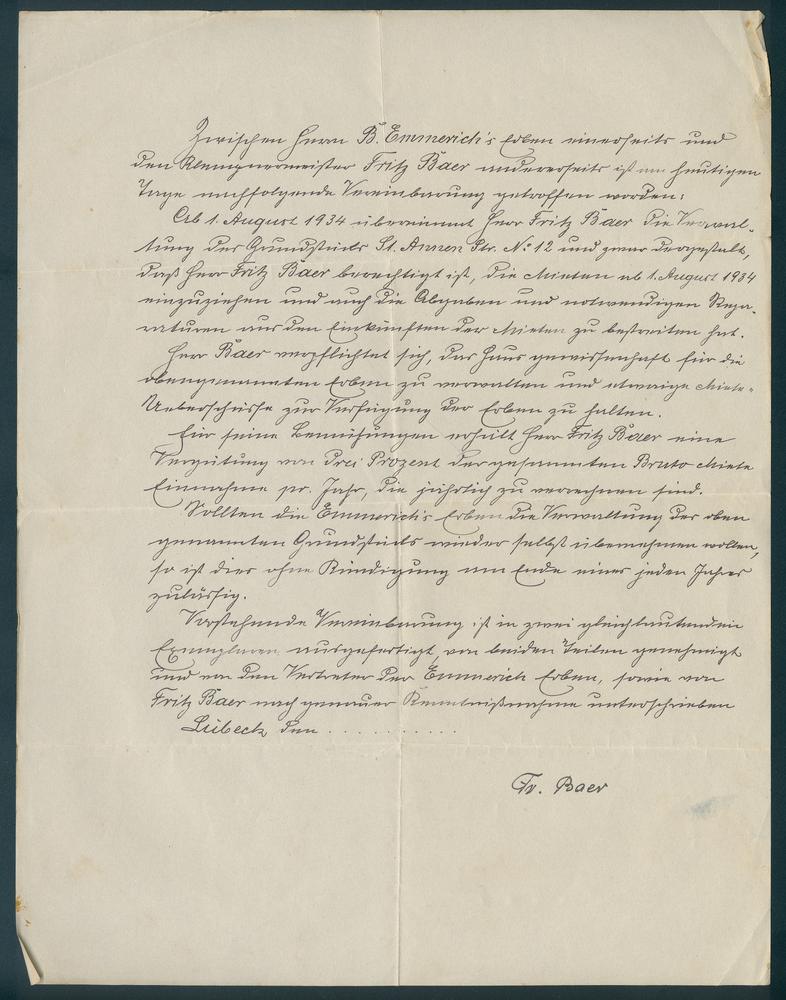 Zwischen Herrn B. Emmerich's Erben einerseits und
den Klempnermeister Fritz Baer andererseits ist am heutigen
Tage nachfolgende Vereinbarung getroffen worden:
Ab 1. August 1934 übernimmt Herr Fritz Baer die Verwal-
tung des Grundstücks St. Annen Str. No 12 und zwar dergestalt,
daß Herr Fritz Baer berechtigt ist, die Mieten ab 1. August 1934
einzuziehen und auch die Abgaben und notwendigen Repa-
raturen aus den Einkünften der Mieten zu bestreiten hat.
Herr Baer verpflichtet sich, das Haus gewissenhaft für die
obengenannten Erben zu verwalten und etwaige Miete-
Ueberschüsse zur Verfügung der Erben zu halten.
Für seine Bemühungen erhält Herr Fritz Baer eine
Vergütung von drei Prozent der gesammten Bruto Miete
Einnahme pr. Jahr, die jährlich zu verrechnen sind.
Sollten die Emmerich's Erben die Verwaltung des oben
genannten Grundstücks wieder selbst übernehmen wollen,
so ist dies ohne Kündigung am Ende eines jeden Jahres
zulässig.
Vorstehende Vereinbarung ist in zwei gleichlautenden
Exemplaren ausgefertigt von beiden Teilen genehmigt
und von den Vertreter der Emmerich Erben, sowie von
Fritz Baer nach genauer Kenntnißnahme unterschrieben
Lübeck den . . . . . . . . . . .
Fr. Baer